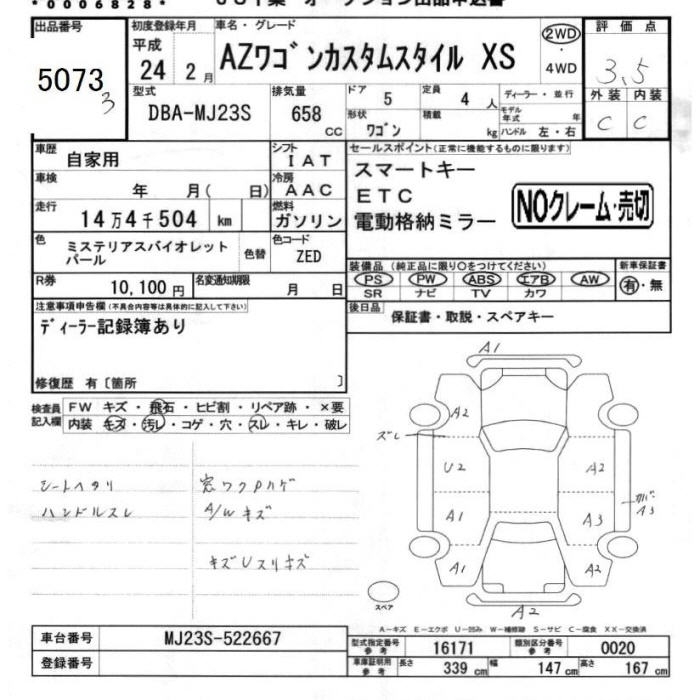 *0006828*
出品番号
5073
3
初度登録年月
平成
24 2月
車名・グレード
AZワゴンカスタムスタイル XS
2WD
・
4WD
評価点
3.5
外装 内装
C C
型式
DBA-MJ23S
排気量
658
CC
ドア
5
定員
4 人
形状
ワゴン
積載
kg
ディーラー・並行
モデル年式 年
ハンドル 左・右
車歴
自家用
シフト
IAT
車検
年 月( 日)
冷房
AAC
走行
14万4千504 km
燃料
ガソリン
色
ミステリアスバイオレット
パール
色替
色コード
ZED
R券
10,100円
名変通知期限
月 日
セールスポイント(正常に機能するものに限ります)
スマートキー
ETC
電動格納ミラー
NOクレーム・売切
装備品(純正品に限り○をつけてください)
PS PW ABS エアB AW
SR ナビ TV カワ
新車保証書
有・無
後日品
保証書・取説・スペアキー
注意事項申告欄(不具合内容等は具体的に記入して下さい)
ディーラー記録簿あり
修復歴 有〔箇所 〕
検査員
記入欄
FW キズ・飛石・ヒビ割・リペア跡・×要
内装 キズ・汚レ・コゲ・穴・スレ・キレ・破レ
シートヘタリ
ハンドルスレ
窓ワクPハゲ
A/Wキズ
キズUスリキズ
A1
A2
ズレ
U2
A2
A1
A3
A3
A1
A2
A2
スペア
A-キズ E-エクボ U-凹み W-補修跡 S-サビ C-腐食 XX-交換済
車台番号
MJ23S-522667
登録番号
型式指定番号
参考
16171
類別区分番号
参考
0020
車庫証明用
参考
長さ
339 cm
幅
147 cm
高さ
167 cm